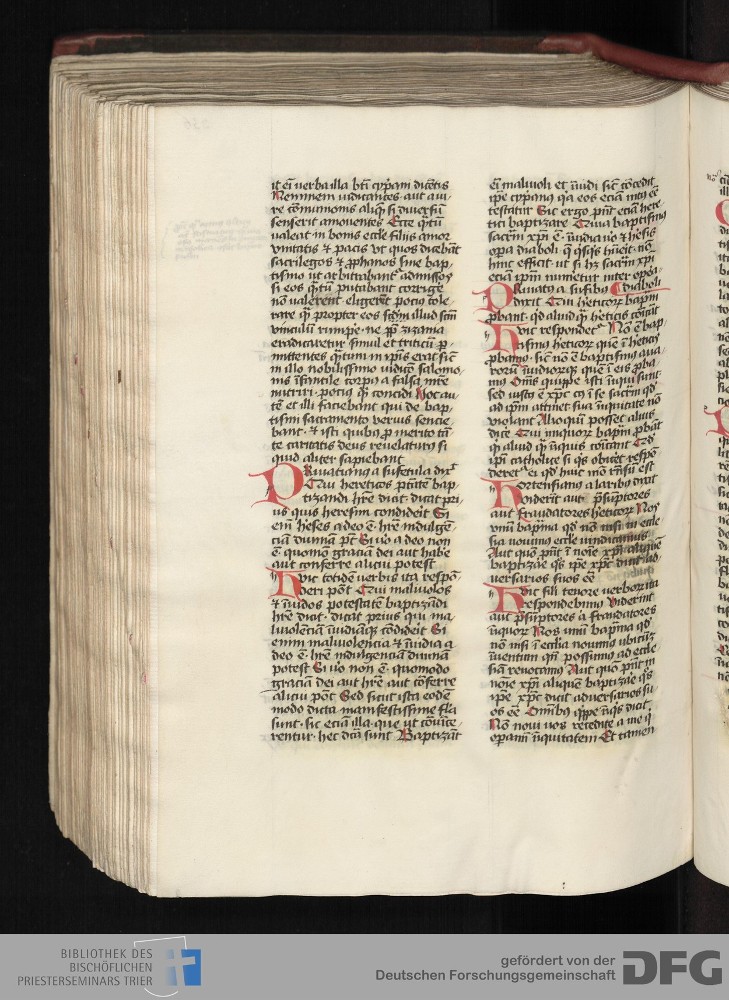 it ei verba illa bti cypani dicetis
Neminem iudicantes aut a iu
re comunionis aliq si diuersu
senserit amouentes Ecce qtu
valeat in bonis eccle filiis amor
vnitatis et pacis vt quos dicebant
sacrilegos et pphanos sine bap
tismo ut arbitrabant admissos
si eos qtu putabant corrige
non valerent eligerent pocius tole
rare q propter eos scdm illud scm
vinculu rumpe ne pp zizania
eradicaretur simul et triticu p
mittentes qtum in ipis erat sic
in illo nobilissimo iudico salomo
nis infantile corpus a falsa mre
nutriri pocius q concidi Hoc au
te et illi faciebant qui de bap
tismi sacramento verius sencie
bant et isti quibus p merito tan
te caritatis deus reuelaturus si
quid aliter sapiebant
Priuacianus a sufetula dix
Qui hereticos ptate bap
tizandi hre dicit dicat pri
us quis heresim condiderit Si
em heses a deo e hre indulge
cia diuinam pt Si vo a deo non
e quomo gracia dei aut habe
aut conferre alicui potest
Huic totide verbis ita respo
deri pot Qui maliuolos
et inuidos potestate baptizadi
hre dicit dicat prius qui ma
liuolencia inuidiaq condiderit Si
enim maliuolencia et inuidia a
deo e hre indulgencia diuina
potest Si vo non e quomodo
gracia dei aut hre aut coferre
alicui pot Sed sicut ista eode
modo dicta manifestissime fla
sunt sic ecia illa que vt couince
rentur hec dca sunt Baptizat
ei maliuoli et inuidi sic cocedit
ipe cypanus qa eos ecia int ee
testatur Sic ergo pnt ecia here
tici baptizare Qui baptismus
sacrm xpi e inuidia vo et hesis
opa diaboli q qsqs huerit no
hinc efficit ut si hz sacrm xpi
ecia ipm numetur inter opera
diaboli
Priuatus a sufibus
dixit Qui heticor bapm
pbant qd aliud q heticis coicat
Huic respondet No e bap
tismus heticor que i hetics
pbamus sic no e baptismus aua
roru inuidiorq que i eis pba
mus Oms quippe isti iniqui sunt
sed iustus e xpc cuius e sacrm qd
ad ipm attinet sua iniquitate no
violant Alioquin posset alius
dice Qui iniquor bapm pbat
qd aliud q iniquis coicant Qd
ipi catholice si qs obiceret respo
deret ei qd huic mo rnsu est
Hortensianus a laribus dixit
Viderint aut psuptores
aut fraudatores heticor Nos
vnu bapma qd no nisi in eccle
sia nouimus eccle vindicamus
Aut quo pnt i noie xpi alique
baptizae qs ipe xpc dicit ad
uersarios suos ee
Huic sili tenore verbor ita
respondebimus Viderint
aut psuptores a fraudatores
iniquor Nos vnu bapma qd
no nisi i ecclia nouimus vbicuq
inuentum qui possumus ad eccle
sia reuocamus Aut quo pnt in
noie xpi alique baptizae qs
ipe xpc dicit aduersarios su
os ee Omibus qppe iniqs dicit
No noui vos recedite a me q
operami iniquitatem Et tamen
BIBLIOTHEK DES
BISCHÖFLICHEN
PRIESTERSEMINARS TRIER
gefördert von der
Deutschen Forschungsgemeinschaft
DFG